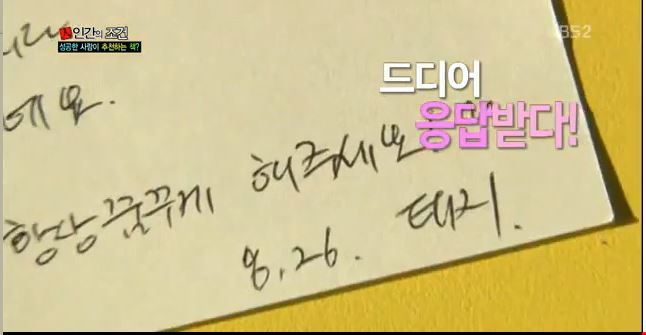 인간의 조건
성공한 사람이 추천하는 책?
KBS2
드디어
응답받다!
니다
데요.
항상 꿈꾸게 해주세요.
8. 26. 태지.